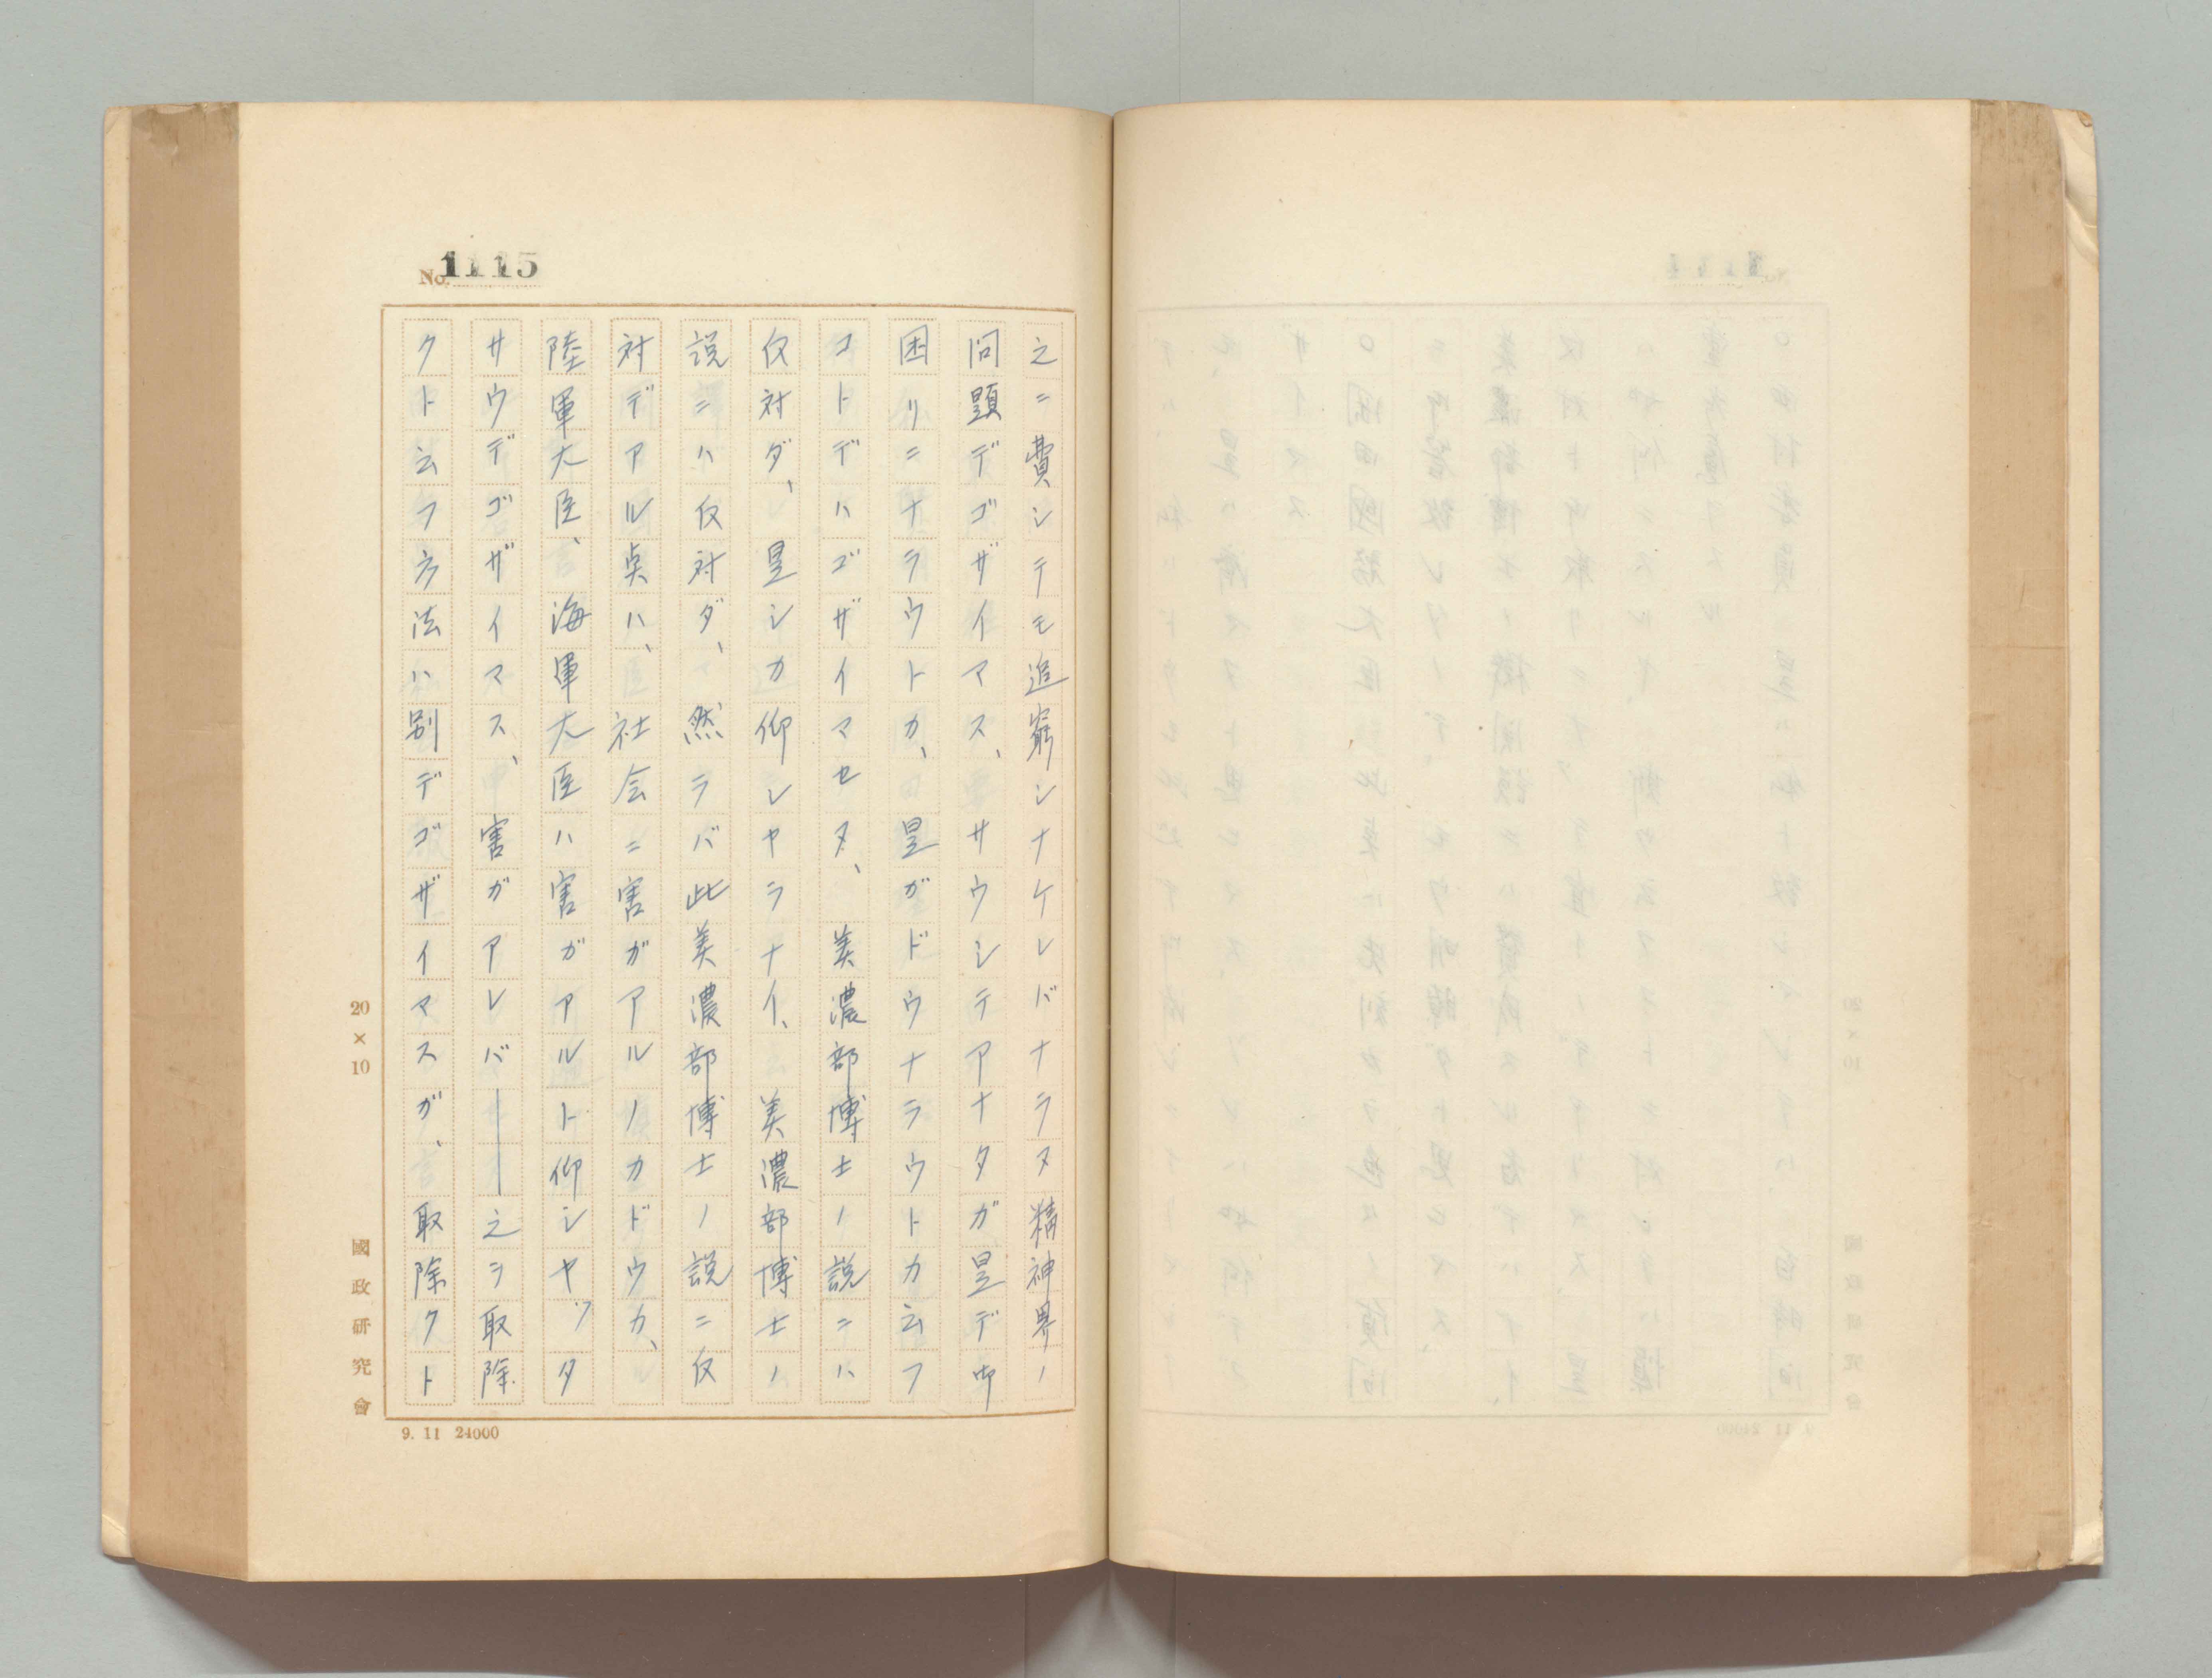 No. 1115
之ニ費シテモ追窮シナケレバナラヌ精神界ノ
問題デゴザイマス、サウシテアナタガ是デ御
困リニナラウトカ、是ガドウナラウトカ云フ
コトデハゴザイマセヌ、美濃部博士ノ説ニハ
反対ダ、是シカ仰シヤラナイ、美濃部博士ノ
説ニハ反対ダ、然ラバ此美濃部博士ノ説ニ反
対デアル点ハ、社会ニ害ガアルノカドウカ、
陸軍大臣、海軍大臣ハ害ガアルト仰シヤツタ
サウデゴザイマス、害ガアレバ――之ヲ取除
クト云フ方法ハ別デゴザイマスガ、取除クト
20×10
國政研究會
9. 11 24000